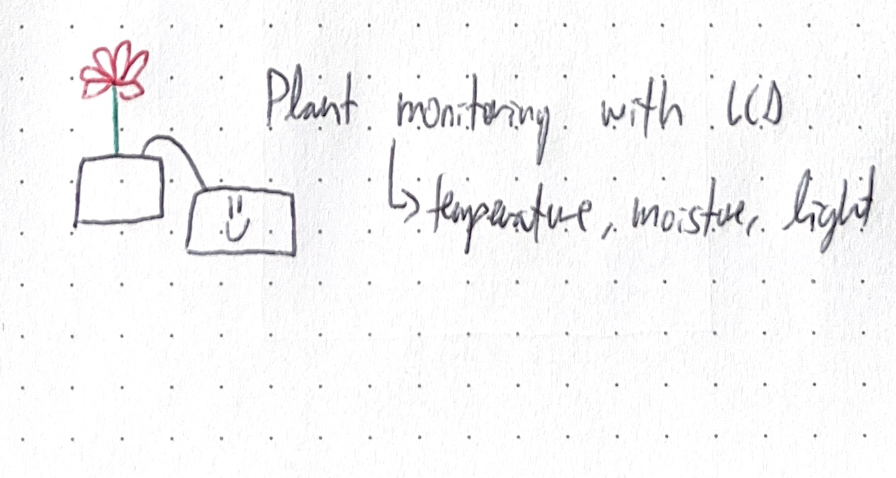 Plant monitoring with LCD
↳ temperature, moisture, light